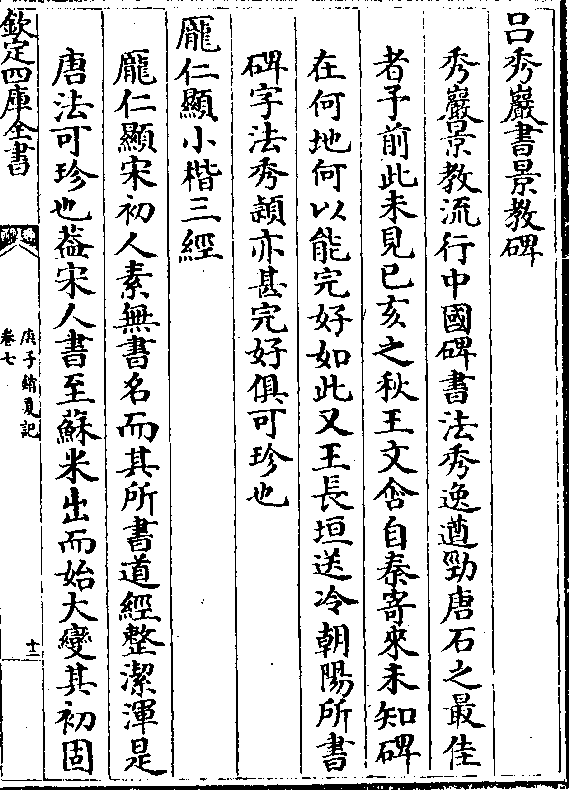 吕秀巖書景教碑
秀巖景教流行中國碑書法秀逸遒勁唐石之最佳
者予前此未見已亥之秋王文含自秦寄來未知碑
在何地何以能完好如此又王長垣送冷朝陽所書
碑字法秀頴亦甚完好俱可珍也
龎仁顯小楷三經
龎仁顯宋初人素無書名而其所書道經整潔渾是
唐法可珍也葢宋人書至蘇米出而始大變其初固
欽定四庫全書
庚子銷夏記
卷七
十二